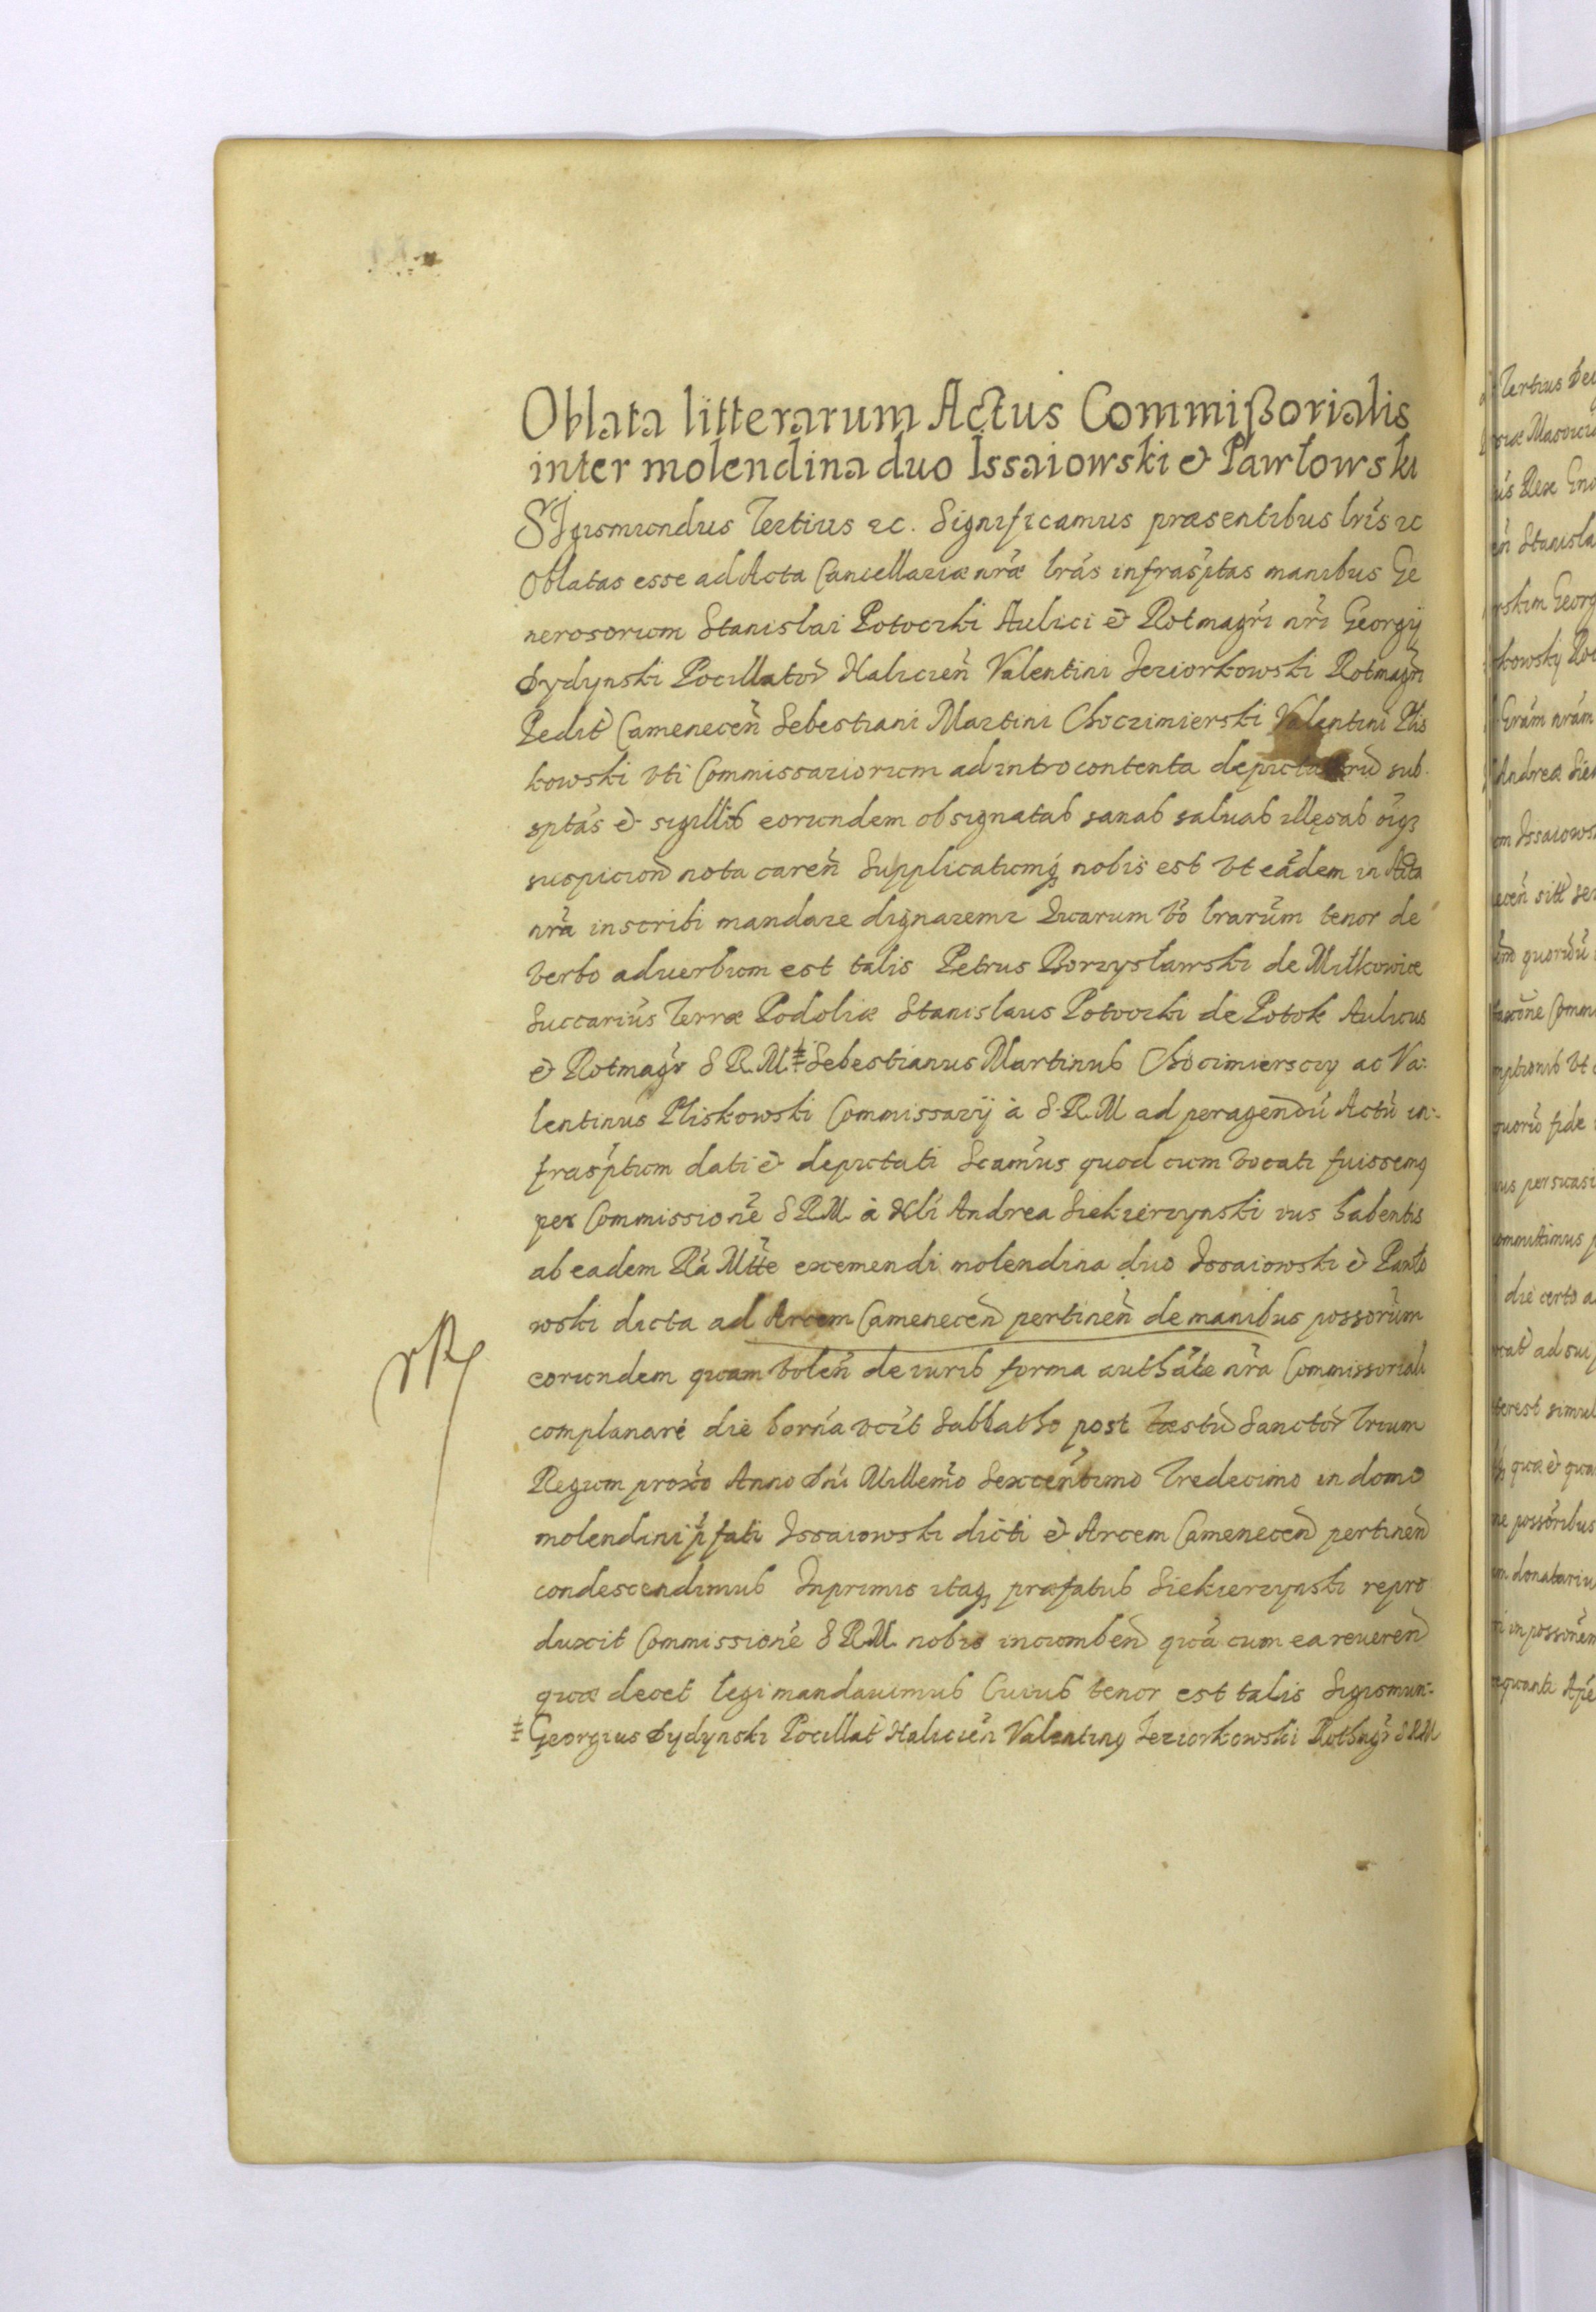 Oblata litterarum Actus Commißorialis
inter molendina duo Issaiowski & Pawłowski
SIgismundus Tertius ec. Significamus præsentibus lris ec
Oblatas esse ad Acta Cancellariæ nræ lras infrasptas manibus Ge
nerosorum Stanislai Potoczki Aulici & Rotmagri nri Georgij
Dydynski Pocillator Halicien Valentini Jeziorkowski Rotmagri
Pedit Camenecen Sebestiani Martini Choczimierski Valentini Plis
kowski vti Commissariorum ad introcontenta sub
sptas & sigillis eorundem obsignatas sanas saluas illęsas oiqz
suspicion nota caren Supplicatumq nobis est vt easdem in Acta
nra inscribi mandare dignaremr Quarum vo lrarum tenor de
verbo aduerbum est talis Petrus Borzysławski de Miłkowice
Succarius Terræ Podoliæ Stanislaus Potoczki de Potok Aulicus
& Rotmagr S R. M. ‡ Sebestianus Martinus Chocimiersczy ac Va:
lentinus Pliskowski Commissarij à S. R. M ad peragendu Actu in:
frasptum dati & depictati Scamus quod cum vocati fuissemq
per Commissione S R M. à Nli Andrea Siekierzynski ius habentis
ab eadem Ra Mtte exemendi molendina duo Issaiowski & Pawło
wski dicta ad Arcem Camenecen pertinen de manibus possorum
eorundem quam volen de iuris forma authate nra Commissoriali
complanare die horna vcit Sabbatho post fæstu Sanctor Trium
Regum proxo Anno Dni Millemo Sexcentimo Tredecimo in domo
molendini pfati Issaiowski dicti & Arcem Camenecen pertinen
condescendimus Inprimis itaq præfatus Siekierzynski repro
duxit Commissione S R M. nobis incumben qua cum ea reueren
quæ decet legi mandauimus Cuius tenor est talis Sigismun:
‡ Georgius Dydynski Pocillat Halicien Valentinq Jeziorkowski Rothmgr S R M